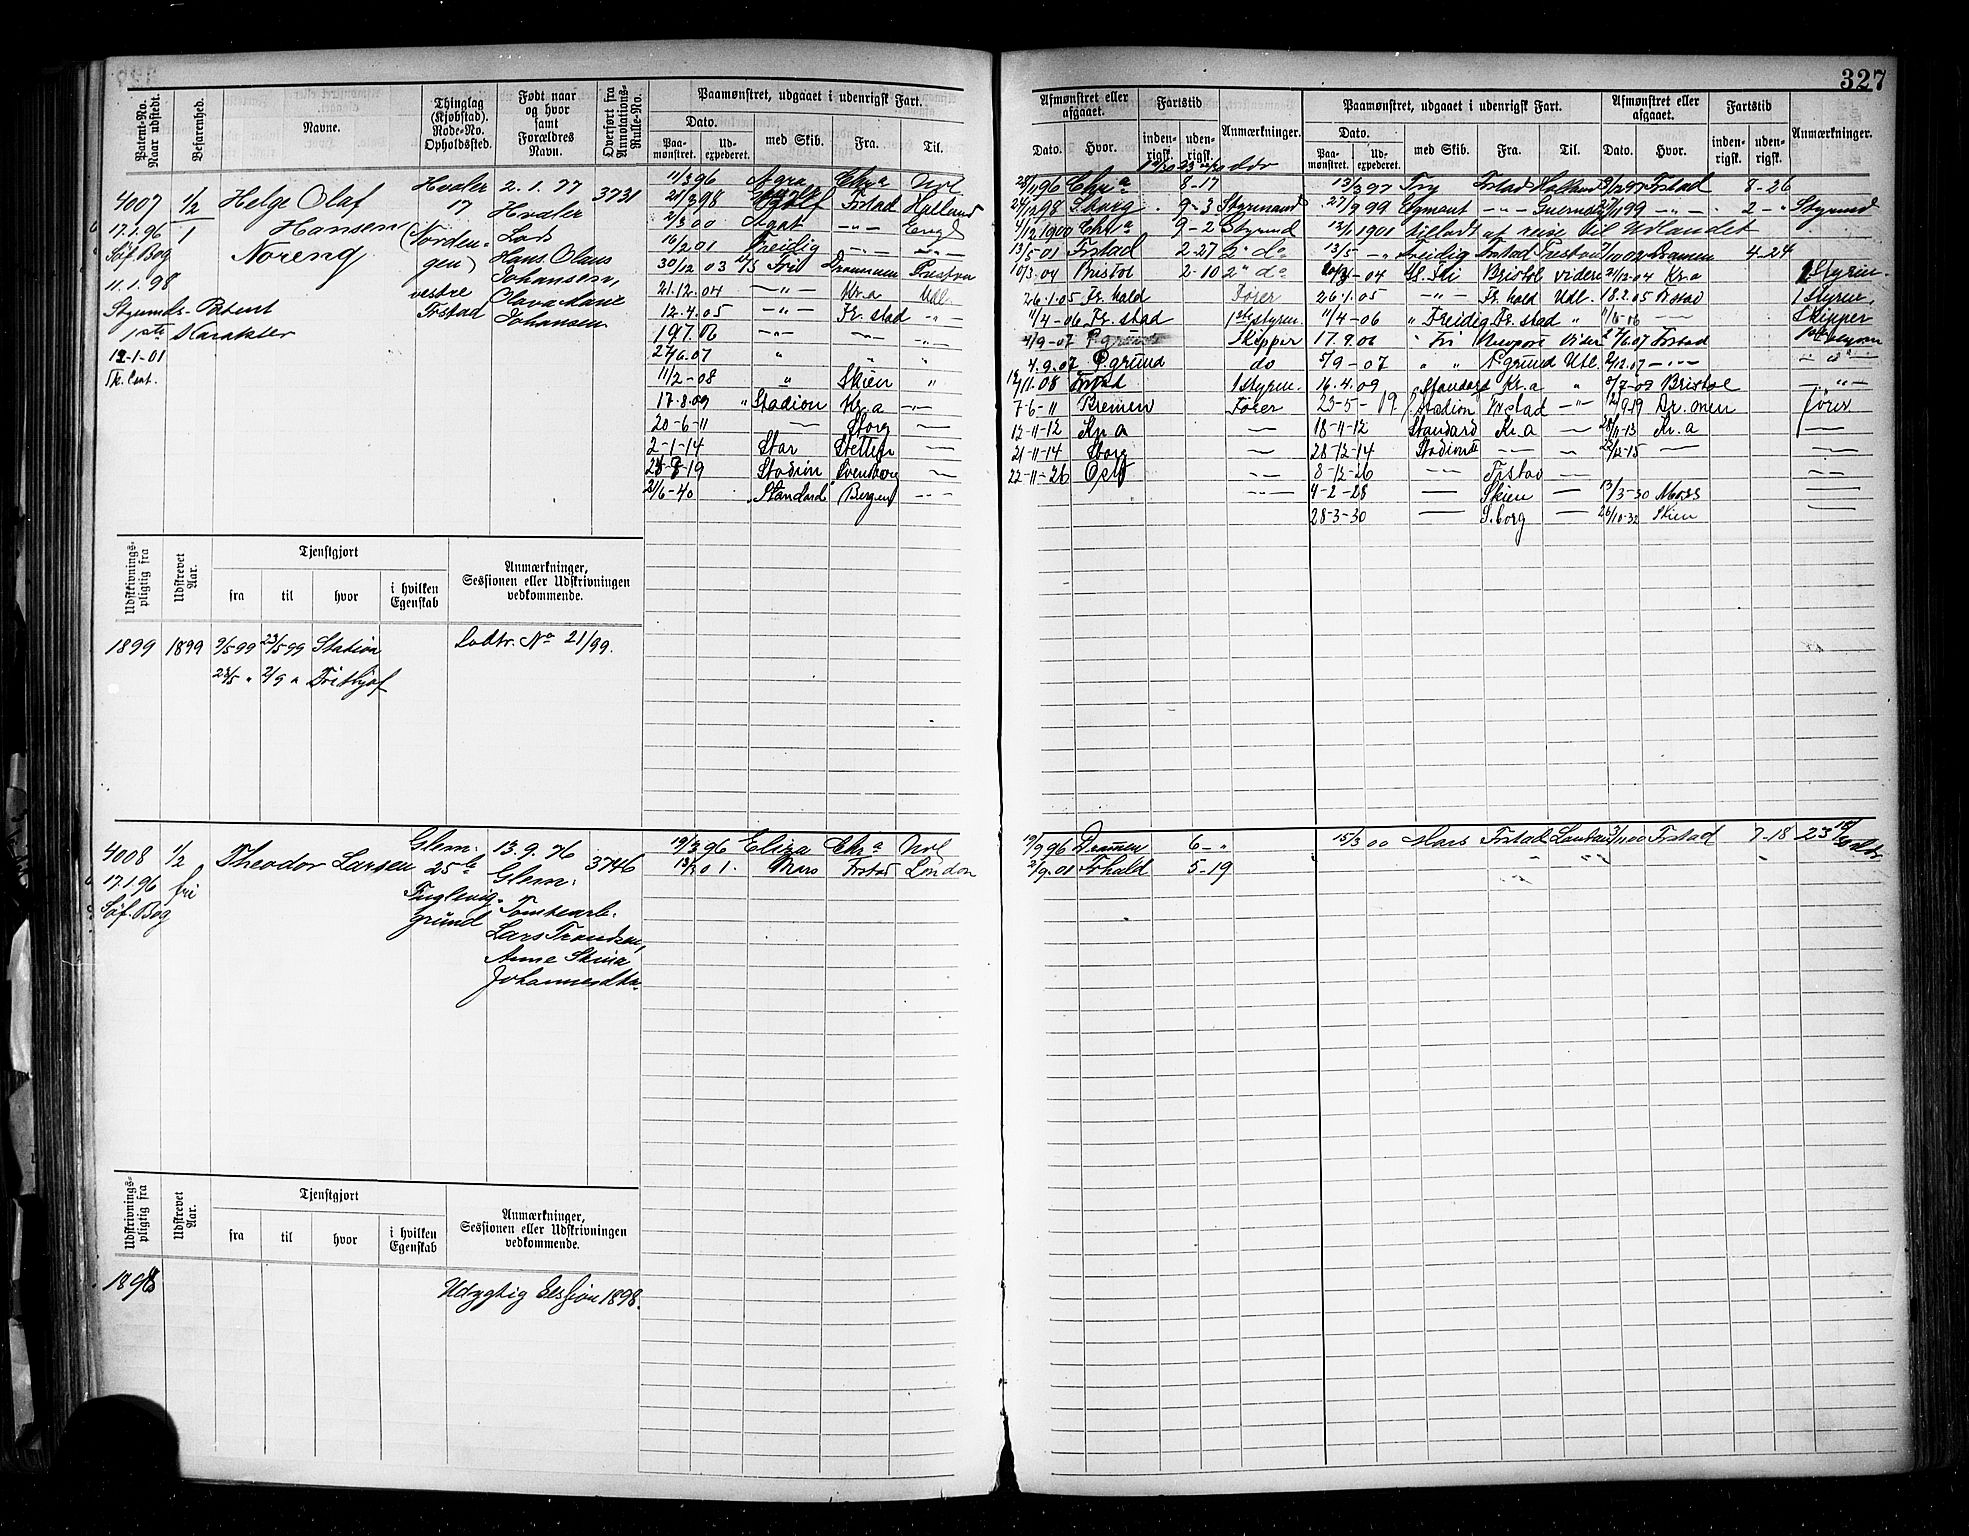 327
Patent-No. Naar udstedt.
Befarenhed.
Navne.
Thinglag (Kjøbstad). Rode-No. Opholdssted.
Født naar og hvor samt Forældres Navn.
Overført fra Annotations-Rulle-No.
Paamønstret, udgaaet i udenrigsk Fart.
Dato.
Paa-mønstret.
Ud-expederet.
med Skib.
Fra.
Til.
Afmønstret eller afgaaet.
Dato.
Hvor.
Fartstid
inden-rigsk.
uden-rigsk.
Anmærkninger.
Paamønstret, udgaaet i udenrigsk Fart.
Dato.
Paa-mønstret.
Ud-expederet.
med Skib.
Fra.
Til.
Afmønstret eller afgaaet.
Dato.
Hvor.
Fartstid
inden-rigsk.
uden-rigsk.
Anmærkninger.
4007
17.1.96
Søf. Bog
11.1.98
Styrmds-Patent
1ste Karakter
12-1-01
1/2
1
Helge Olaf
Hansen
Noreng
Hvaler
17
(Norden-
gen)
vestre
Frstad
2.1.77
Hvaler
Hans Olaus
Johansen,
Johansen
3731
11/3 96 Agra Chra Nvl
21/3 98 Frstad Holland
2/3 00 Agat -"- Engl
16/2 01 Freidig -"- -"-
30/12 03 Fri Drammen Preston
21.12.04 -"- Kr.a Udl
12.4.05 -"- Fr.stad -"-
19 7.06 -"- -"-
27/6.07 " " "
11/2-08 " Skien "
17.8.09 " Stadion Kr.a -"-
20-6-11 — Sborg —
2-1-14 Star Stettin —
Stadion Svendborg —
21/6-40 "Standard" Bergen -"-
28/11 96 Chra 8-17
24/12 98 Sborg 9-3 Styrmand
1/12 1900 Chra 9-2 Styrmd
13/5-01 Frstad 2-27 2" do
10/3.04 Bristol 2-10 2" do
26.1.05 Fr.hald Fører
11/4-06 Fr.stad 1ste Styrm.
4/9-07 P.grund Skipper
4.9.07 P.grund do
12/11.08 Frstad 1 Styrm.
7-6-11 Bremen Fører
12-11-12 Kr.a —
21-11-14 Sborg —
22-11-26 Oslo -"-
13/2 97 Try Frstad Holland Frstad 8-26
27/9 99 Egmont -"- Guernsey -"- 2-" Styrmd
12/1 1901 tilladt at reise til Udlandet
13/5 -"- Freidig Frstad Preston 7/10 02 Bramen 4-24
-04 Sk. Fri Bristol videre 21/12-04 Kr.a 1 Styrm.
26.1.05 -"- Fr.hald Udl. 18.2.05 Frstad 1 Styrm.
11/4-06 " Freidig Fr.stad " Skipper
17.9.06 " Fri Newport Vider 27/6 07 Frstad
5/9-07 " " P.grund Udl. 2/12.07 -"-
16.4.09 Standard Kr.a " 8/7-09 Bristol -"-
23-5-19 Stadion Frstad -"- 12/9-19 Dr.onen Fører
18-11-12 Standard Kr.a — 28/11-13 Kr.a —
28-12-14 Stadion — — —
8-12-26 -"- Frstad —
4-2-28 — Skien — 13/3-30 Moss —
28-3-30 — S.borg — 26/10-32 Skien —
Udskrivnings-pligtig fra
Udskrevet Aar.
Tjenstgjort
fra
til
hvor
i hvilken Egenskab
Anmærkninger, Sessionen eller Udskrivningen vedkommende.
1899 1899 9/5 99 23/5 99 Stadion Lodtr. No 21/99.
23/5 " 2/9 " Frithjof
4008
17.1.96
Søf. Bog
1/2
fri
Theodor Larsen
Glem:
25b
Fuglevig-
grund
13.9.76
Glem:
Tomtearb.
Lars Trondsen,
Anne Stina
Johannesdtr.
3746
19/3 96 Eliza Chra Nvl
13/3 01. Mars Frstad London
19/9 96 Dramen 6-"
2/9.01 Frhald 5-19
15/3 00 Mars Frstad London 3/11 00 Frstad 7-18
Udskrivnings-pligtig fra
Udskrevet Aar.
Tjenstgjort
fra
til
hvor
i hvilken Egenskab
Anmærkninger, Sessionen eller Udskrivningen vedkommende.
1898 Udygtig Session 1898.